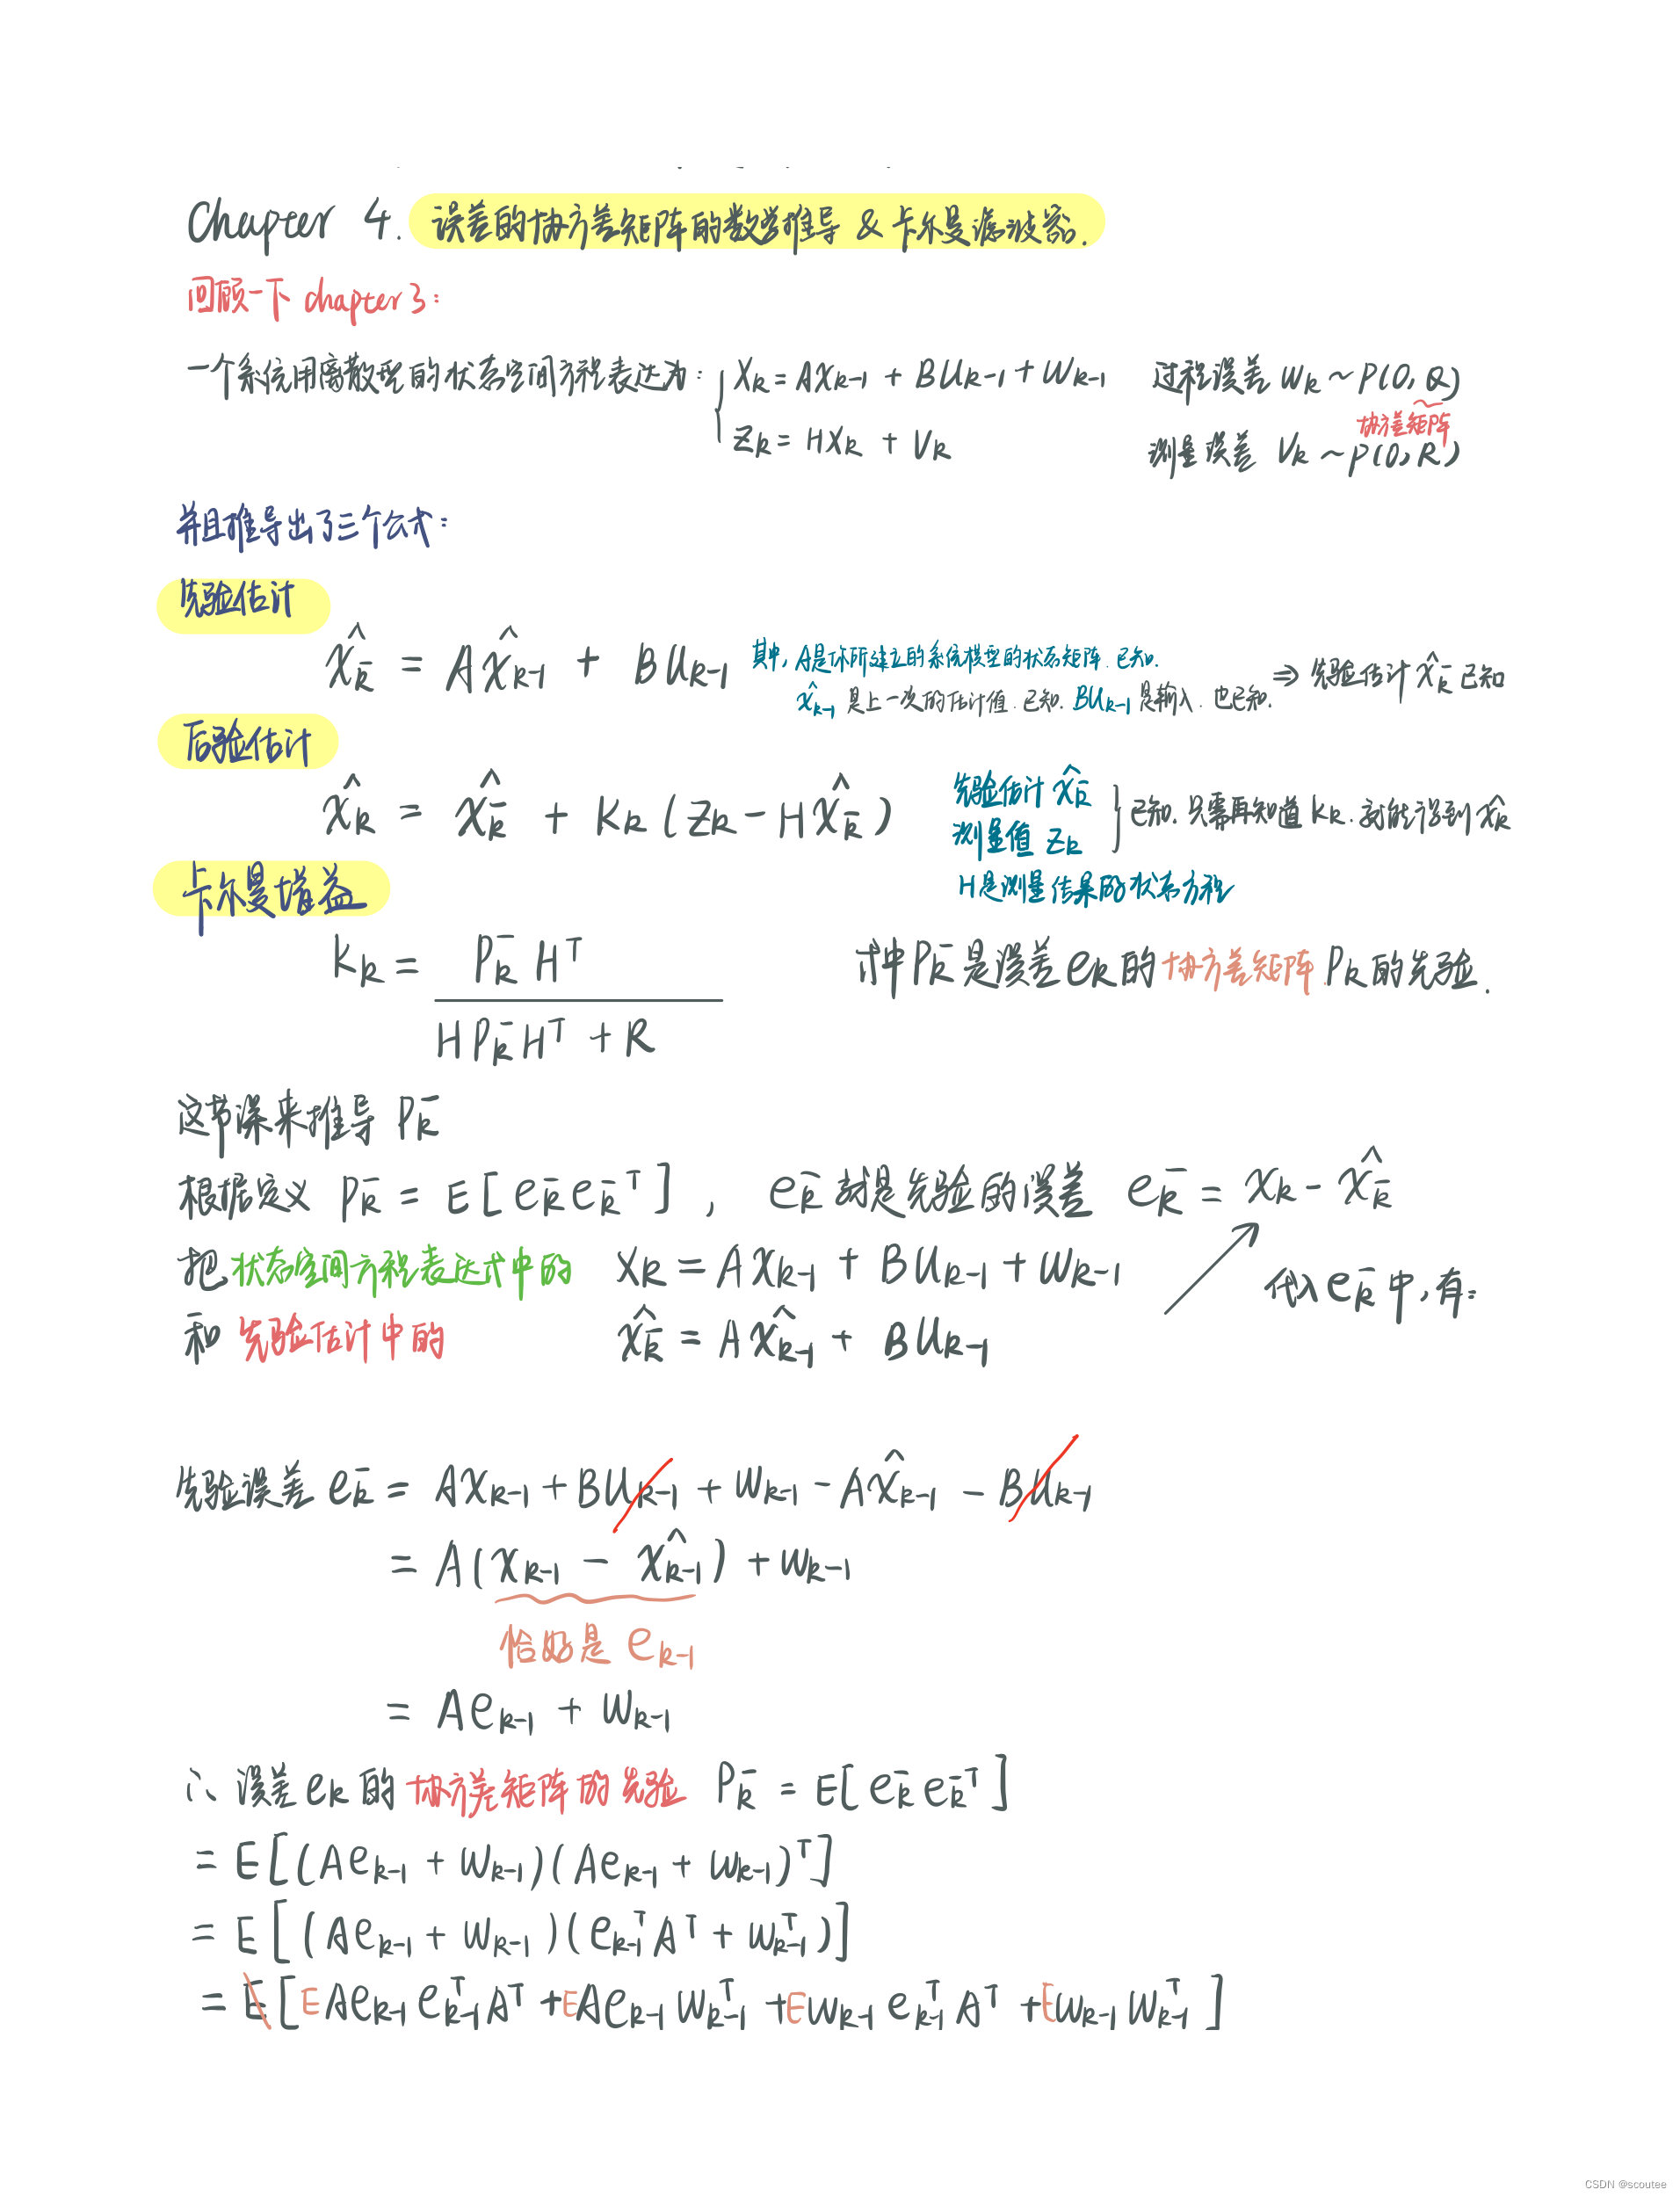 Chapter 4. 误差的协方差矩阵的数学推导 & 卡尔曼滤波器.
回顾一下 chapter 3:
一个系统用离散型的状态空间方程表达为: { X_k = AX_{k-1} + BU_{k-1} + W_{k-1} 过程误差 W_k ~ P(0, Q)
协方差矩阵
Z_k = HX_k + V_k 测量误差 V_k ~ P(0, R)
并且推导出了三个公式:
先验估计
x̂_k^- = Ax̂_{k-1} + BU_{k-1} 其中, A是你所建立的系统模型的状态矩阵. 已知.
x̂_{k-1} 是上一次的估计值. 已知. BU_{k-1} 是输入. 也已知. ⇒ 先验估计 x̂_k^- 已知
后验估计
x̂_k = x̂_k^- + K_k (Z_k - Hx̂_k^-) 先验估计 x̂_k^-
测量值 Z_k } 已知. 只需再知道 K_k. 就能得到 x̂_k
H是测量结果的状态方程
卡尔曼增益
K_k = P_k^- H^T / (H P_k^- H^T + R) 式中 P_k^- 是误差 e_k 的协方差矩阵 P_k 的先验.
这节课来推导 P_k^-
根据定义 P_k^- = E[e_k^- e_k^-^T], e_k^- 就是先验的误差 e_k^- = x_k - x̂_k^-
把 状态空间方程表达式中的 X_k = AX_{k-1} + BU_{k-1} + W_{k-1}
代入 e_k^- 中, 有:
和 先验估计中的 x̂_k^- = Ax̂_{k-1} + BU_{k-1}
先验误差 e_k^- = AX_{k-1} + BU_{k-1} + W_{k-1} - Ax̂_{k-1} - BU_{k-1}
= A(x_{k-1} - x̂_{k-1}) + W_{k-1}
恰好是 e_{k-1}
= Ae_{k-1} + W_{k-1}
∴ 误差 e_k 的 协方差矩阵的先验 P_k^- = E[e_k^- e_k^-^T]
= E[(Ae_{k-1} + W_{k-1})(Ae_{k-1} + W_{k-1})^T]
= E[(Ae_{k-1} + W_{k-1})(e_{k-1}^T A^T + W_{k-1}^T)]
= E[E Ae_{k-1} e_{k-1}^T A^T + E Ae_{k-1} W_{k-1}^T + E W_{k-1} e_{k-1}^T A^T + E W_{k-1} W_{k-1}^T]
CSDN @scoutee